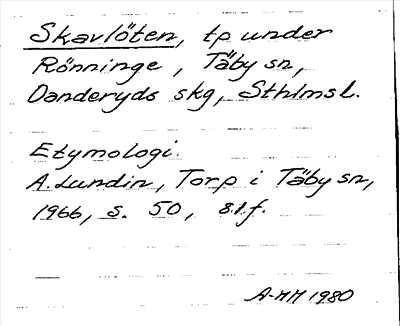 Skavlöten, tp under
Rönninge, Täby sn,
Danderyds skg, Sthlmsl.
Etymologi.
A. Lundin, Torp i Täby sn,
1966, s. 50, 81f.
A-MM 1980